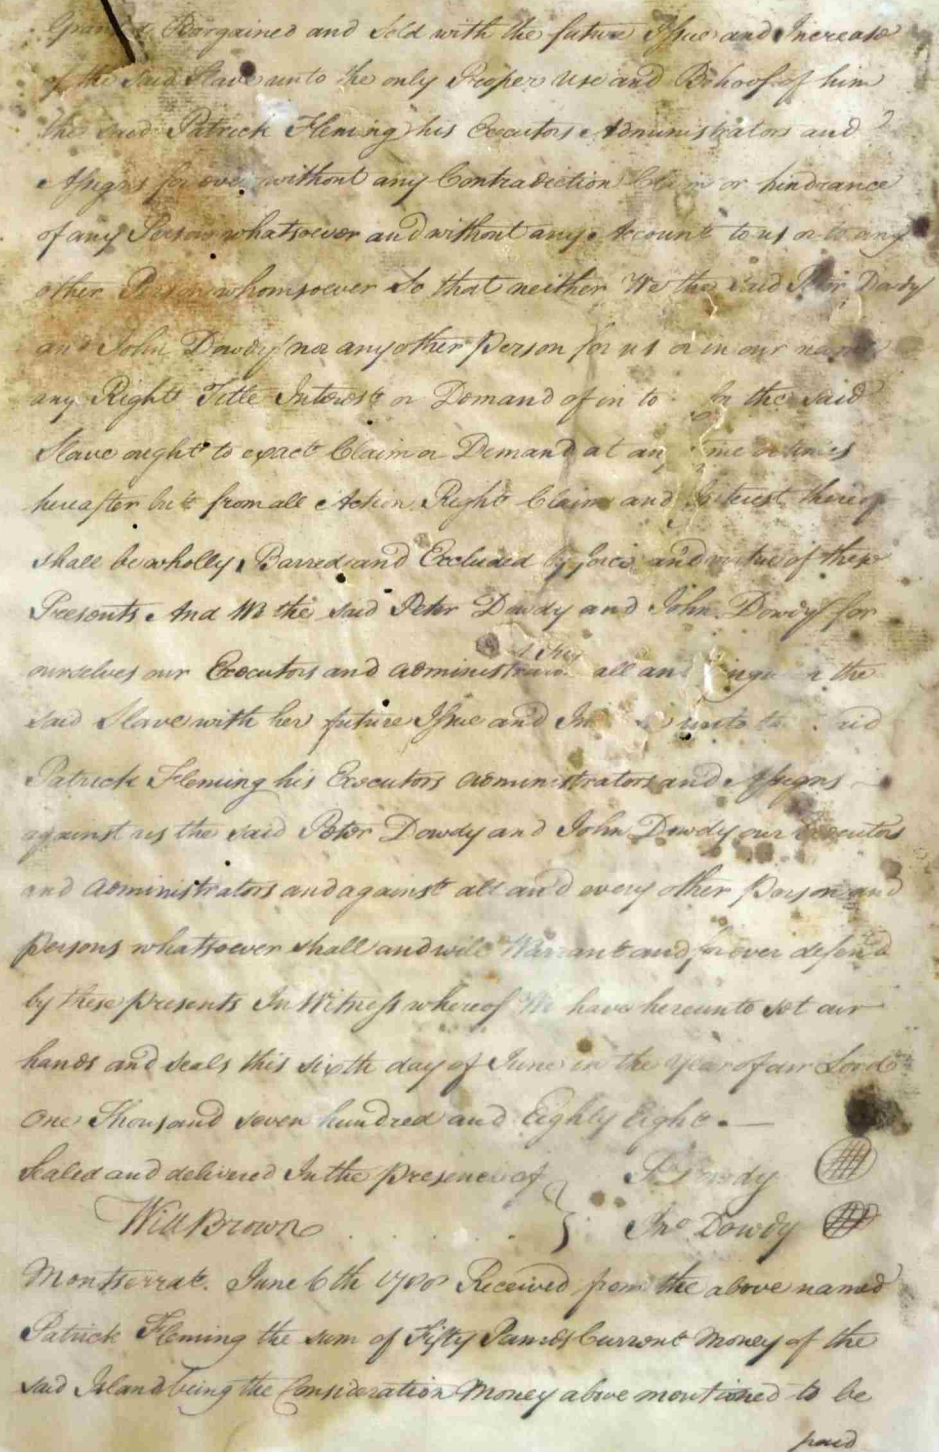 Bargained and Sold with the future Issue and Increase
of the said Slave unto the only Proper Use and Behoof of him
the said Patrick Fleming his Executors Administrators and
Assigns for ever without any Contradiction Claim or hindrance
of any Person whatsoever and without any Account to us or to any
other Person whomsoever So that neither We the said Peter Dowdy
and John Dowdy nor any other Person for us or in our names
any Right Title Interest or Demand of in to for the said
Slave ought to exact Claim or Demand at any time or times
hereafter but from all Action Right Claim and Interest thereof
shall be wholly Barred and Excluded by force and virtue of these
Presents And We the said Peter Dowdy and John Dowdy for
ourselves our Executors and administrators all and the
said Slave with her future Issue and unto
Patrick Fleming his Executors administrators and Assigns
against us the said Peter Dowdy and John Dowdy our Executors
and administrators and against all and every other Person and
Persons whatsoever shall and will Warrant and forever defend
by these Presents In Witness whereof We have hereunto set our
hands and seals this sixth day of June in the Year of our Lord
One Thousand seven hundred and Eighty Eight. —
Sealed and delivered In the presence of } P Dowdy
Will Brown } Jno Dowdy
Montserrat. June 6th 1788 Received from the above named
Patrick Fleming the sum of Fifty Pounds Current Money of the
said Island being the Consideration Money above mentioned to be
paid